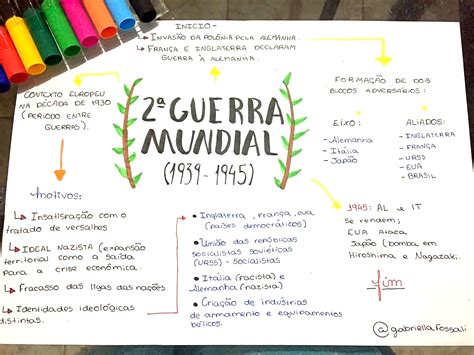 INÍCIO -
↳ INVASÃO DA POLÔNIA PELA ALEMANHA.
↳ FRANÇA E INGLATERRA DECLARAM
GUERRA À ALEMANHA.
CONTEXTO EUROPEU
NA DÉCADA DE 1930
(PERÍODO ENTRE
GUERRAS).
2ª GUERRA
MUNDIAL
(1939-1945)
FORMAÇÃO DE DOIS
BLOCOS ADVERSÁRIOS:
EIXO:
- Alemanha
- Itália
- Japão
ALIADOS:
- INGLATERRA
- FRANÇA
- URSS
- EUA
- BRASIL
Motivos:
↳ Insatisfração com o
tratado de versalhes
↳ IDEAL NAZISTA (expansão
territorial como a saída
para a crise econômica.
↳ Fracasso das ligas das nações
↳ Identidades ideológicas
distintas.
• Inglaterra, frança, eua
(países democráticos)
• União das repúblicas
socialistas soviéticas
(URSS) - socialistas
• Itália (facista) e
Alemanha (nazista)
• Criação de indústrias
de armamento e equipamentos
bélicos.
1945: AL e IT
se rendem;
EUA ataca
Japão (bomba em
Hiroshima e Nagazaki.
fim
@gabriella.rossaii